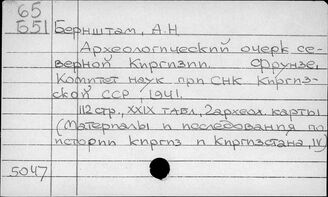 65
Б51
Бернштам, А.Н
Археологический очерк се-
верной Киргизии. Фрунзе,
Комитет наук при СНК Киргиз-
ской ССР, 1941.
112 стр., XXIX табл., 2 археол. карты
(Материалы и исследования по
истории киргиз и Киргизстана, IV)
5047